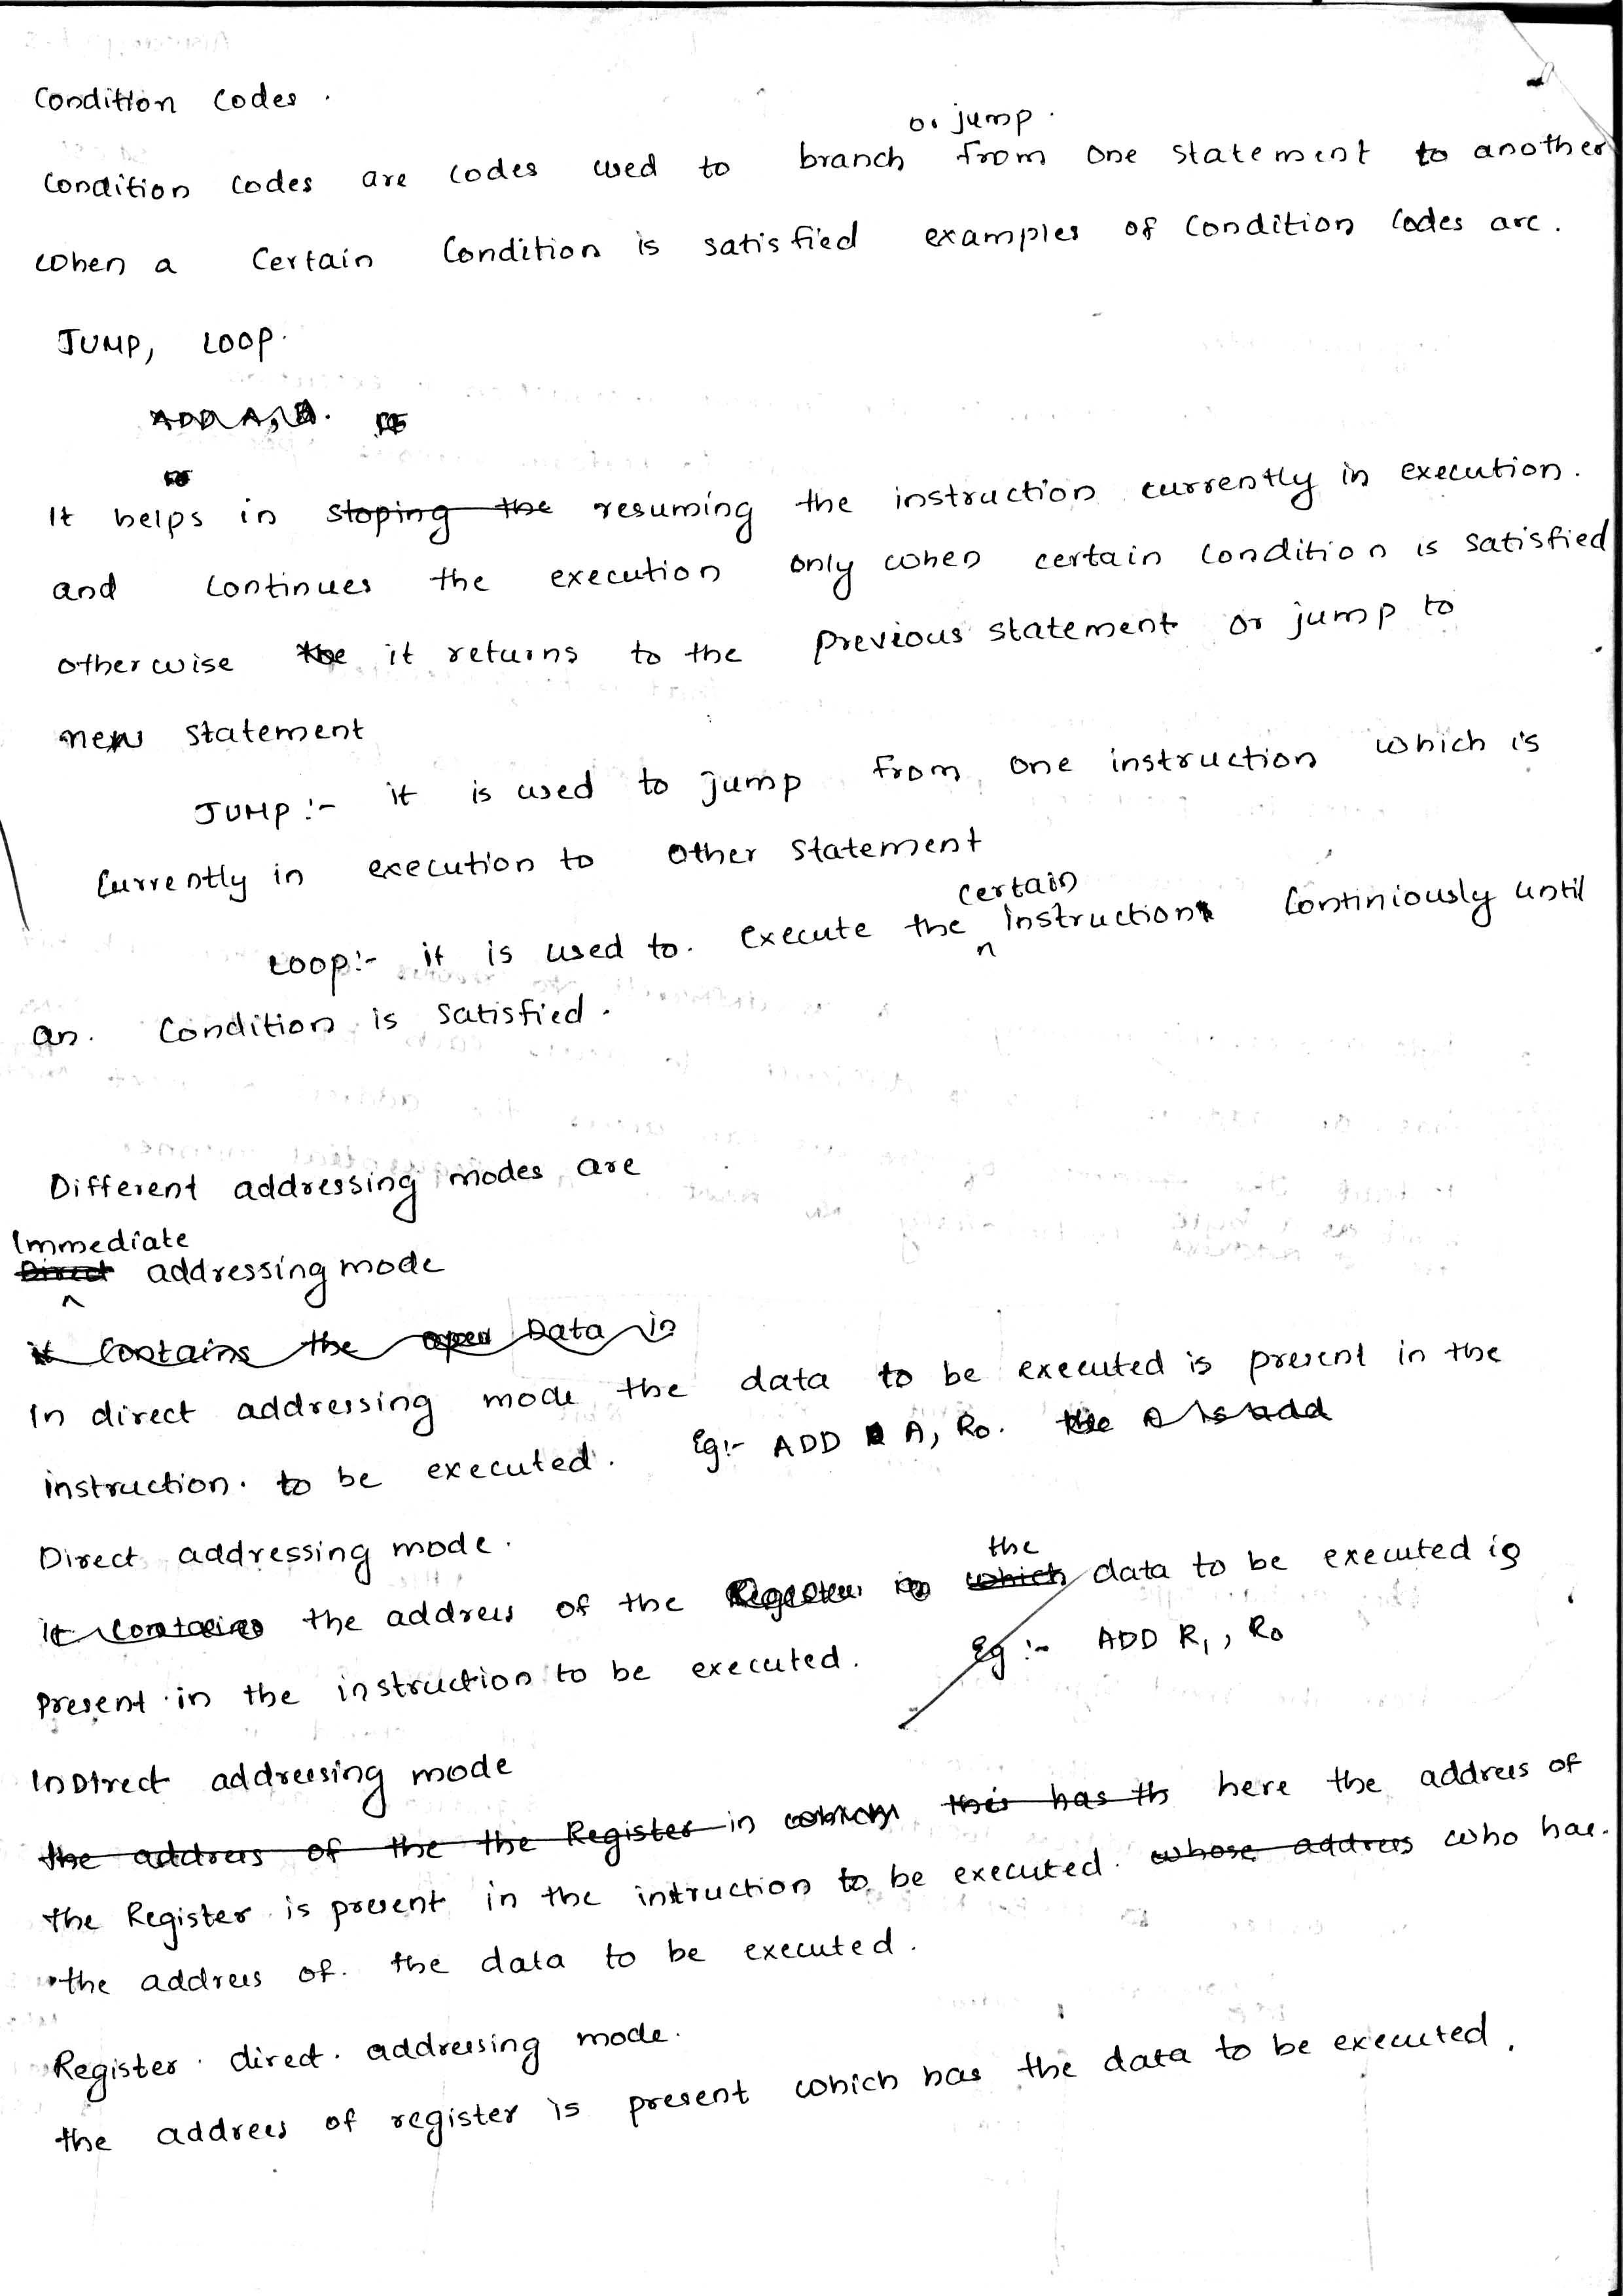 Condition Codes.
or jump.
Condition Codes are codes used to branch from one statement to another
when a Certain Condition is satisfied examples of Condition Codes are.
JUMP, LOOP.
ADD A,
It helps in stoping the resuming the instruction currently in execution.
and continues the execution only when certain condition is satisfied
otherwise the it returns to the previous statement or jump to
new statement
JUMP :- it is used to jump from one instruction which is
Currently in execution to other statement
certain
LOOP:- it is used to. execute the instruction Continiously until
an. Condition is satisfied.
Different addressing modes are
Immediate
Direct addressing mode
it Contains the oper Data in
In direct addressing mode the data to be executed is present in the
instruction. to be executed. Eg:- ADD A, R0. the A is add
Direct addressing mode.
the
it contains the address of the Register in which data to be executed is
present in the instruction to be executed. Eg :- ADD R1, R0
InDirect addressing mode
the address of the the Register in which this has th here the address of
the Register is present in the intruction to be executed. whose address who has.
the address of. the data to be executed.
Register. direct. addressing mode.
the address of register is present which has the data to be executed.